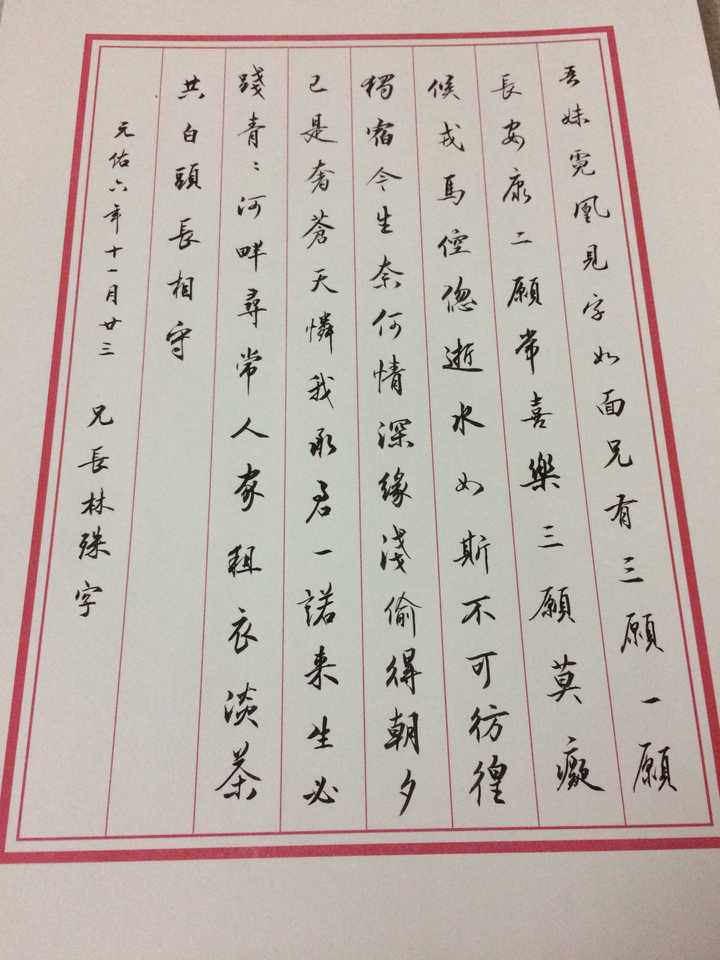 吾妹霓凰見字如面兄有三願一願
長安康二願常喜樂三願莫癡
候戎馬倥傯逝水如斯不可彷徨
獨宿今生奈何情深緣淺偷得朝夕
已是奢蒼天憐我承君一諾来生必
踐青〻河畔尋常人家粗衣淡茶
共白頭長相守
元佑六年十一月廿三 兄長林殊字